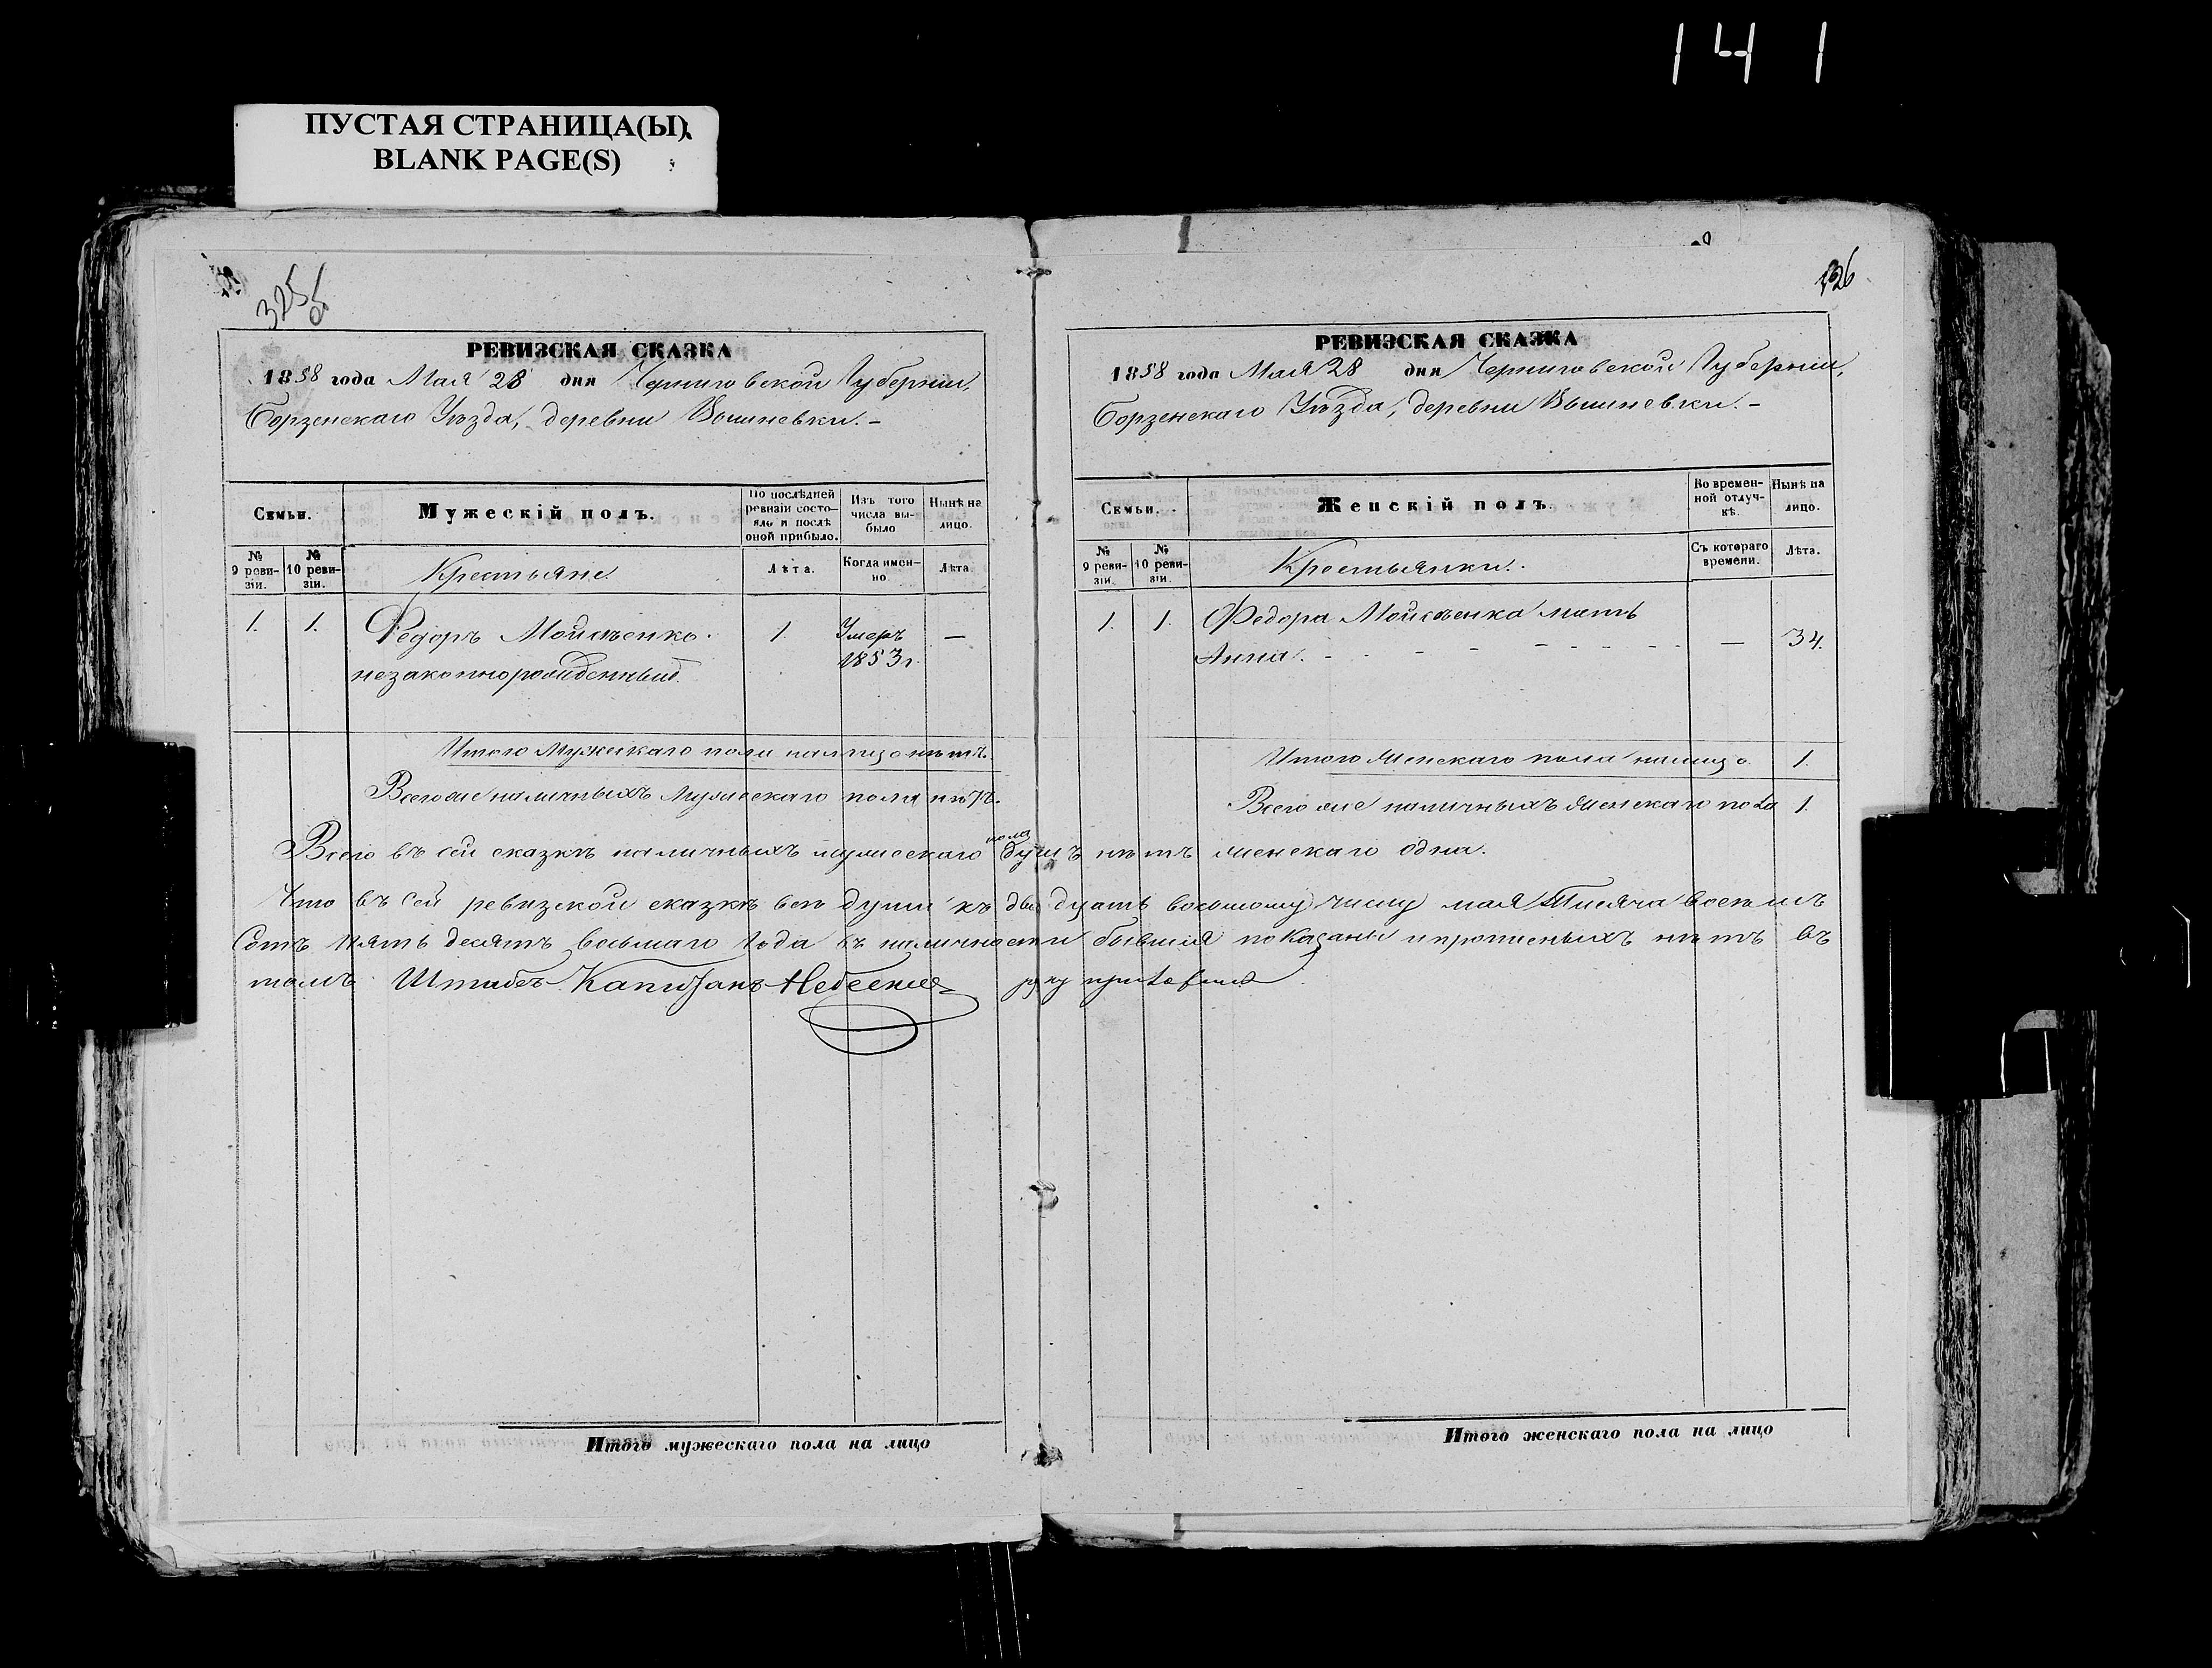 141
ПУСТАЯ СТРАНИЦА(Ы)
BLANK PAGE(S)
325 об
326
РЕВИЗСКАЯ СКАЗКА
1858 года Мая 28 дня Черниговской Губернии,
Борзенскаго Уѣзда, деревни Вышневки. –
Семьи.
Мужескій полъ.
По послѣдней ревизіи состояло и послѣ оной прибыло.
Изъ того числа выбыло
Нынѣ на лицо.
№ 9 ревизіи.
№ 10 ревизіи.
Крестьяне.
Лѣта.
Когда именно
Лѣта
1. 1. Федоръ Мойсѣенко. 1. Умеръ —
незаконнорожденный. 1853 г.
Итого Мужескаго пола налицо нѣтъ.
Всего же наличныхъ Мужескаго пола нѣтъ.
РЕВИЗСКАЯ СКАЗКА
1858 года Мая 28 дня Черниговской Губернии,
Борзенскаго Уѣзда, деревни Вышневки. –
Семьи.
Женскій полъ.
Во временной отлучкѣ.
Нынѣ на лицо.
№ 9 ревизіи.
№ 10 ревизіи.
Крестьянки.
Съ котораго времени.
Лѣта.
1. 1. Федора Мойсѣенка мать
Анна. - - - - - - - — 34.
Итого Женскаго пола налицо 1.
Всего же наличныхъ Женскаго пола 1.
Всего въ сей сказкѣ наличныхъ мужескаго пола душъ нѣтъ женскаго одна.
Что въ сей ревизской сказкѣ всѣ души къ двадцать восьмому числу мая Тысяча восемъ
Сотъ Пять десятъ восьмаго Года въ наличности бывшия показаны и прописныхъ нѣтъ въ
томъ Штабсъ Капитанъ руку приложилъ
Итого мужескаго пола на лицо
Итого женскаго пола на лицо